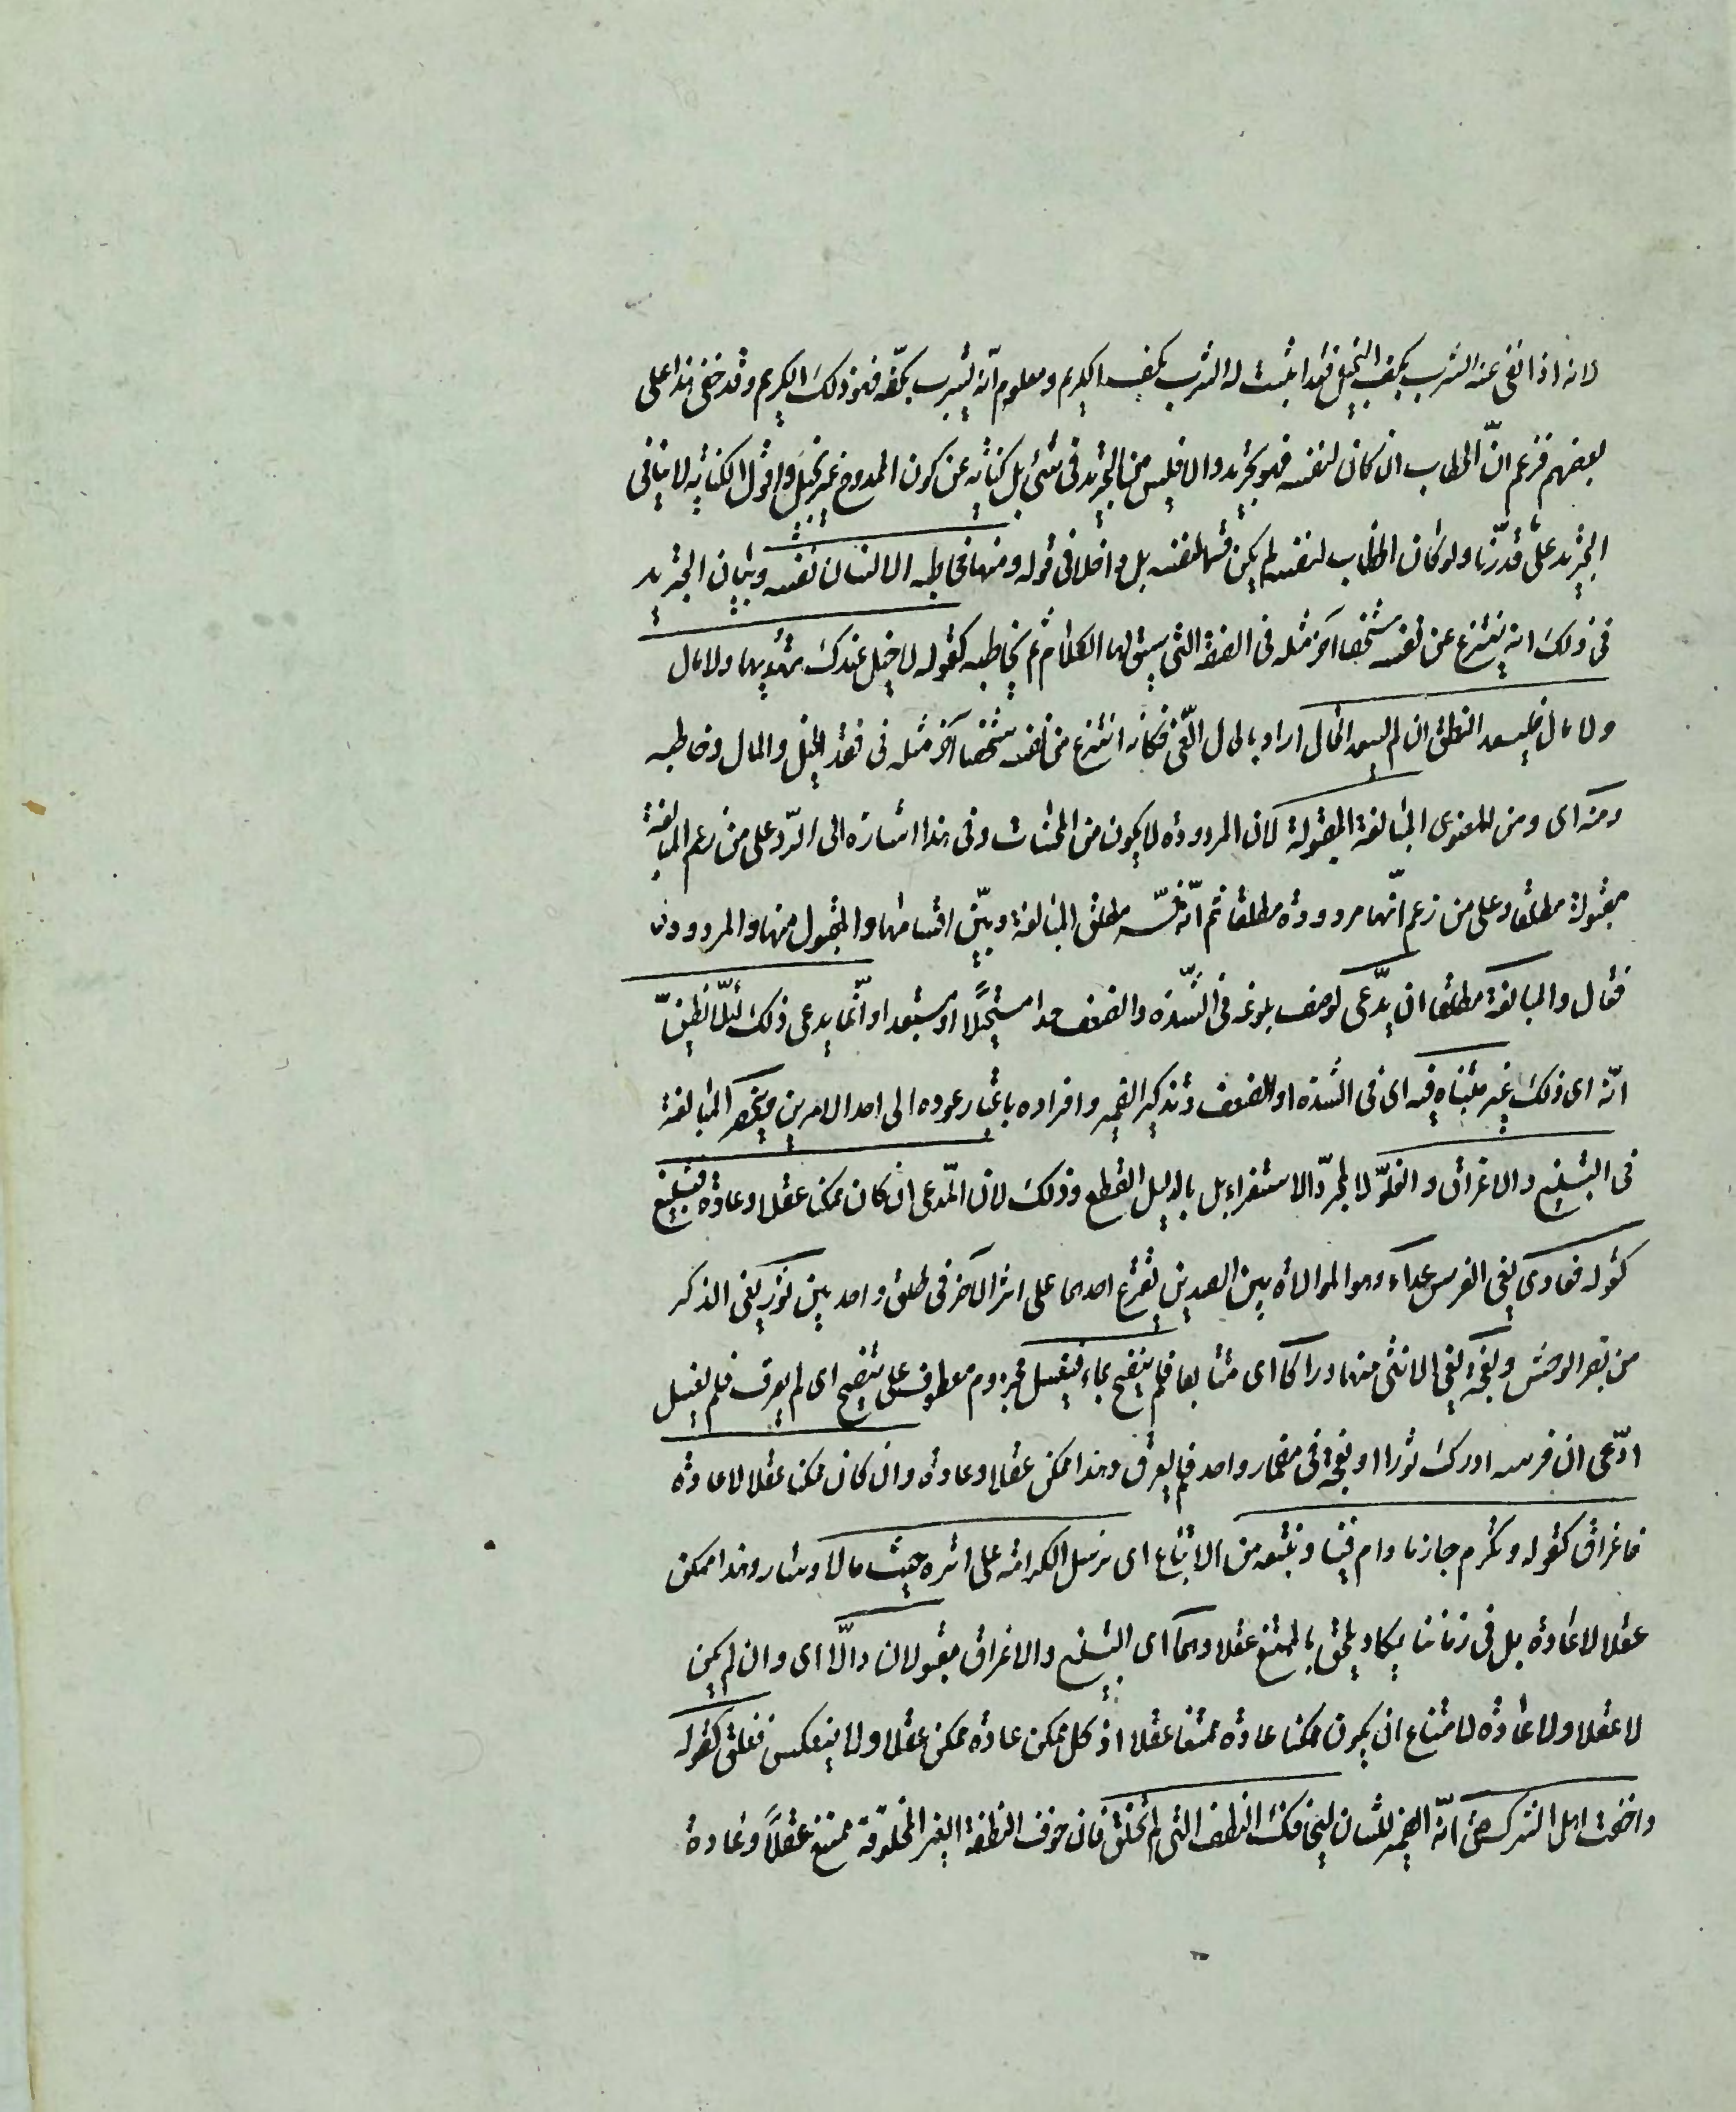 لانه اذا نفى عنه الشرب بكف البخيل فقد اثبت له الشرب بكف الكريم ومعلوم انّه يشرب بكفّه فهو ذلك الكريم وقد خفى هذا على
بعضهم فزعم انّ الخطاب ان كان لنفسه فهو تجريد والا فليس من التجريد فى شئ بل كناية عن كون الممدوح غير بخيل واقول الكناية لا ينافى
التجريد على ما قررنا ولو كان الخطاب لنفسه لم يكن قسما بنفسه بل داخلا فى قوله ومنها مخاطبة الانسان نفسه وبيان التجريد
فى ذلك انه ينتزع عن نفسه شخصا آخر مثله فى الصفة التى سيق لها الكلام ثم يخاطبه كقوله لا خيل عندك تهديها ولا مال
ولا مال فليسعد النطق ان لم يسعد الحال اراد بالحال الغنى فكانه انتزع من نفسه شخصا آخر مثله فى فقد الخيل والمال وخاطبه
ومنه اى ومن المعنوى المبالغة المقبولة لان المردودة لا يكون من المحسنات وفى هذا اشارة الى الرّد على من زعم المبالغة
مقبولة مطلقا وعلى من زعم انّها مردودة مطلقا ثم انّه فسّر مطلق المبالغة وبيّن اقسامها والمقبول منها والمردود
فقال والمبالغة مطلقا ان يدّعى لوصف بلوغه فى الشّدة والضعف حدا مستحيلًا او مستبعدا وانّما يدعى ذلك لئلّا يظنّ
انّه اى ذلك غير متناه فيه اى فى الشدة او الضعف وتذكير الضمير وافراده باعتبار عوده الى احد الامرين وينحصر المبالغة
فى التبليغ والاغراق والغلوّ لا بمجرّد الاستقراء بل بالدليل القطع وذلك لان المّدعى ان كان ممكنا عقلا وعادة فتبليغ
كقوله فعادى يعنى الفرس عداء وهو الموالاة بين الصيدين يصرع احدهما على اثر الآخر فى طلق واحد بين ثور يعنى الذكر
من بقر الوحش ونعجة يعنى الانثى منها دراكا اى متتابعا فلم ينضح بماء فيغسل مجزوم معطوف على ينضح اى لم يعرق فلم يغسل
ادّعى ان فرسه ادرك ثورا ونعجة فى مضمار واحد فلم يعرق وهذا ممكن عقلا وعادة وان كان ممكنا عقلا لا عادة
فاغراق كقوله ونكرم جارنا ما دام فينا ونتبعه من الاتباع اى نرسل الكرامة على اثره حيث مالا وسار وهذا ممكن
عقلا لا عادة بل فى زماننا يكاد يلحق بالممتنع عقلا وهما اى التبليغ والاغراق مقبولان والّا اى وان لم يكن
لا عقلا ولا عادة لامتناع ان يكون ممكنا عادة ممتنعا عقلا اذ كل ممكن عادة ممكن عقلا ولا ينعكس فغلو كقوله
واخفت اهل الشرك حتى انّه الضمير للشان ليخافك النطف التى لم تخلق فان خوف النطفة الغير المخلوقة ممتنع عقلًا وعادة